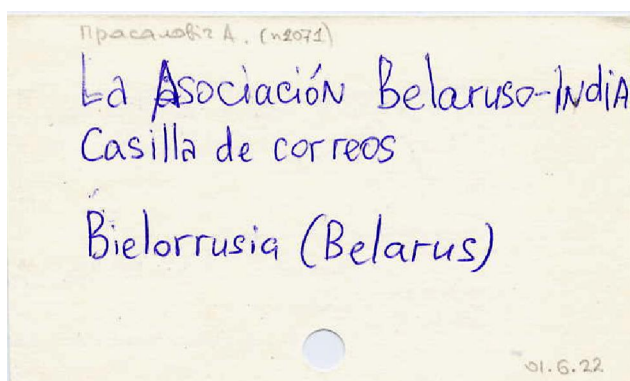 Прасаловіч А. (n2071)
La Asociación Belaruso-India
Casilla de correos
Bielorrusia (Belarus)
01.6.22